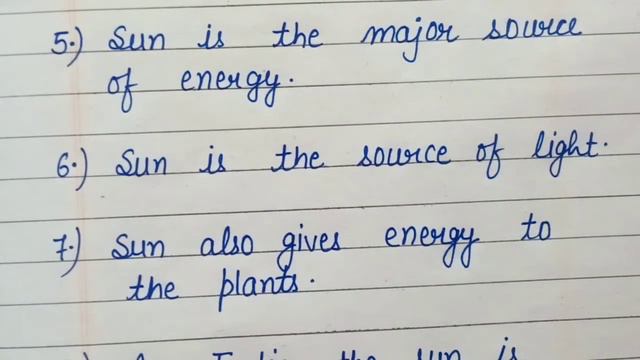 5.) Sun is the major source
of energy.
6.) Sun is the source of light.
7.) Sun also gives energy to
the plants.
the sun is